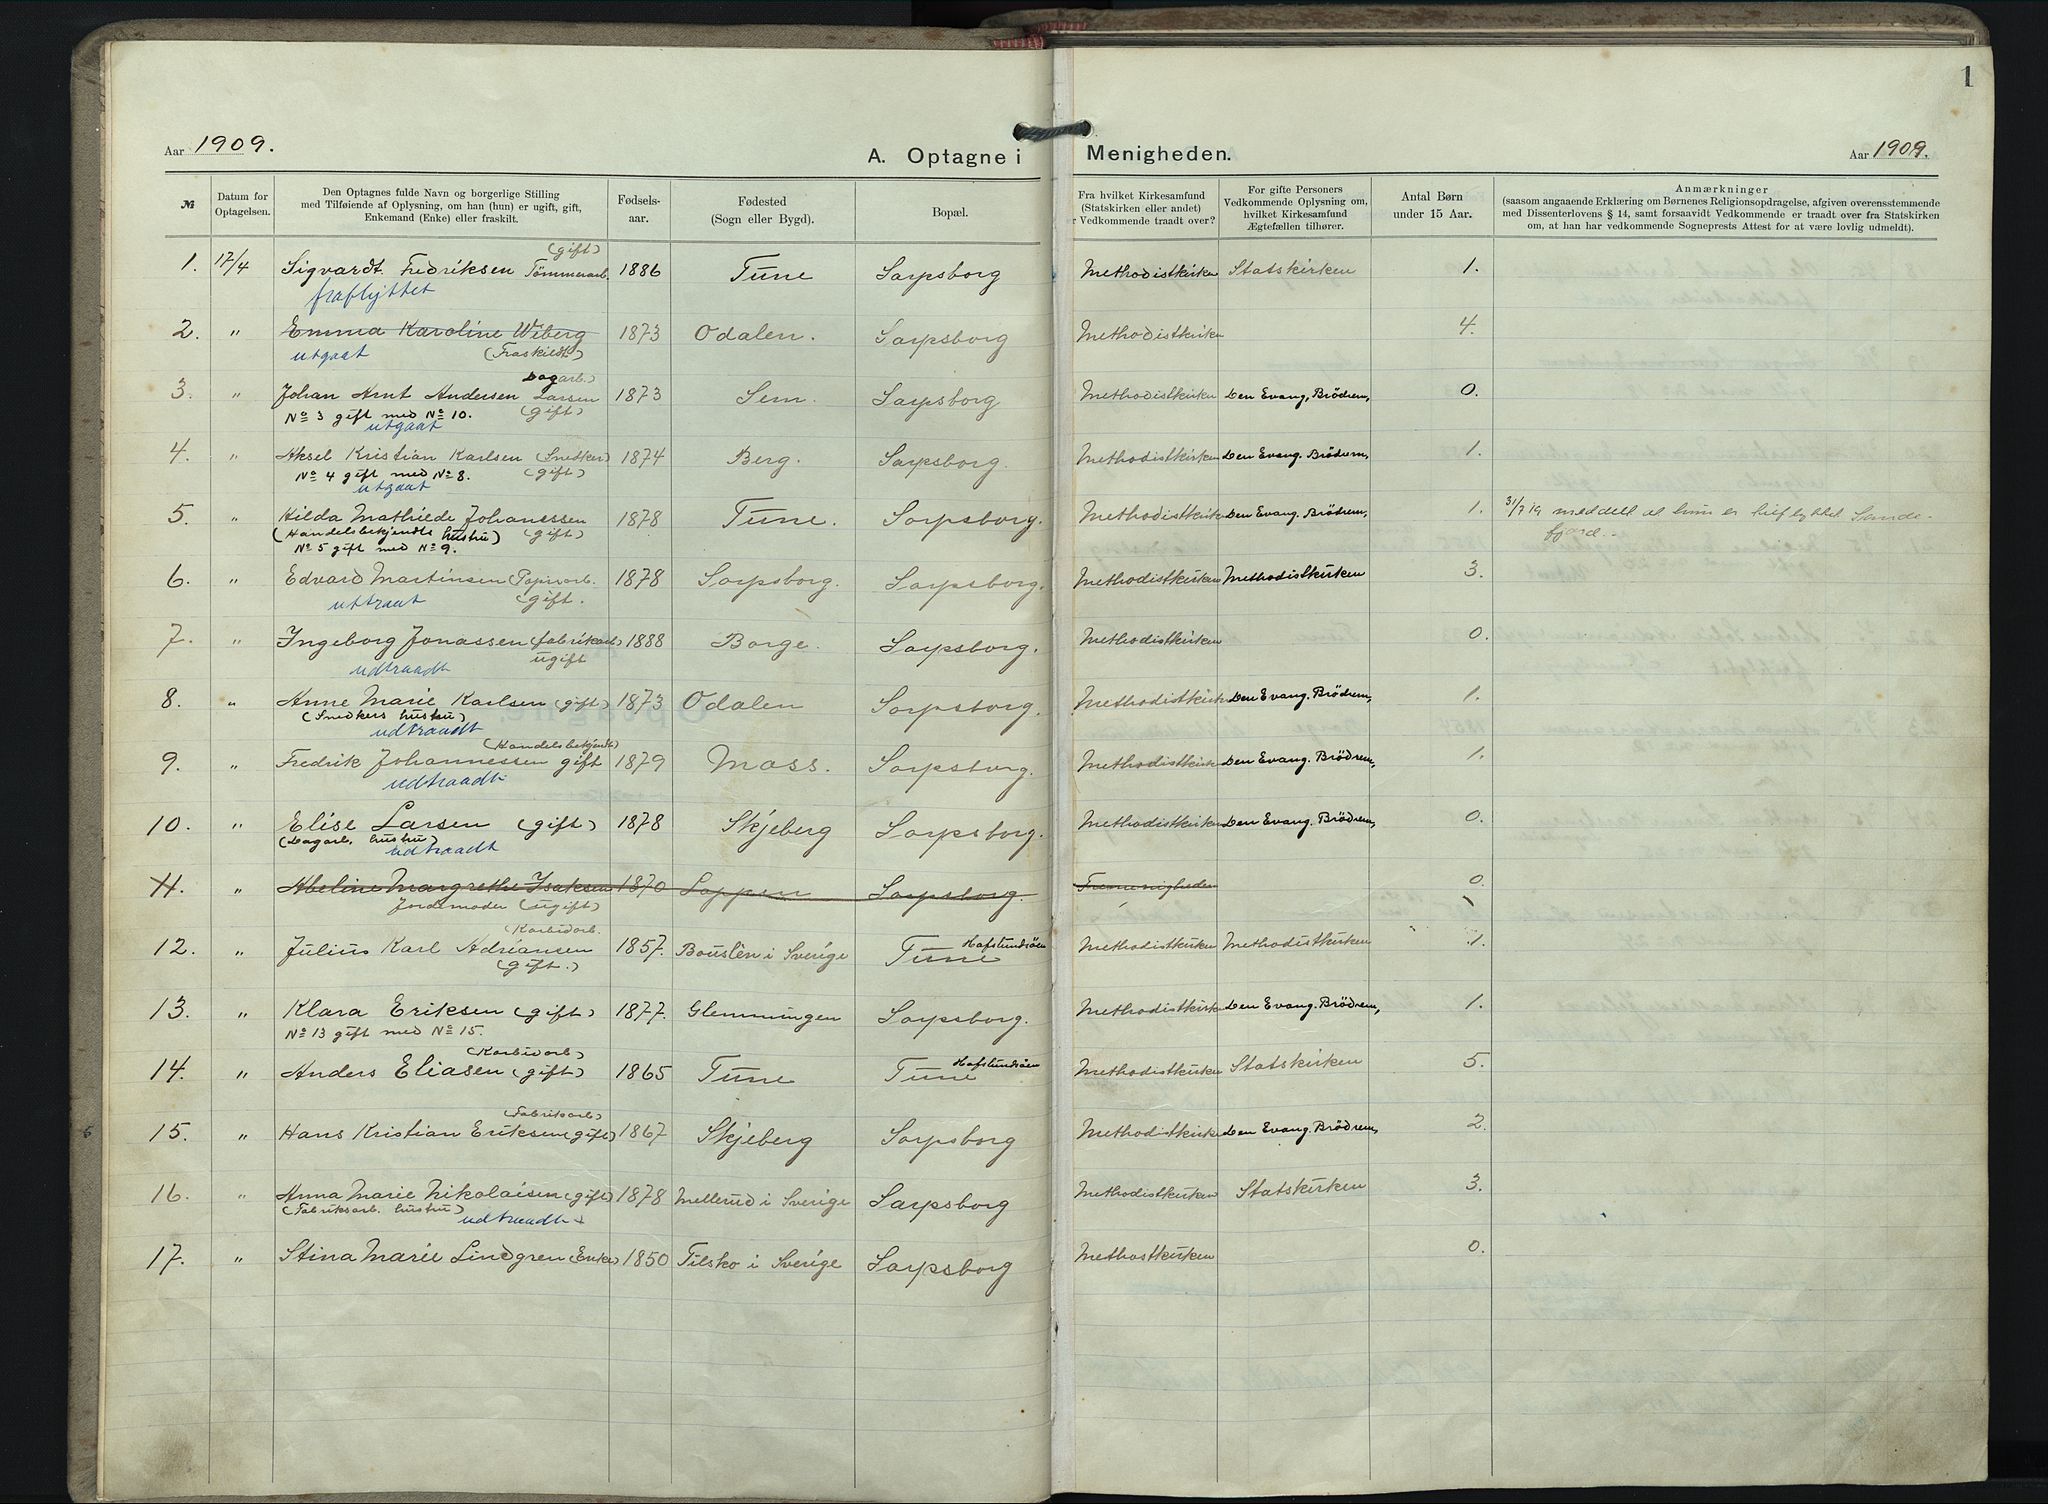 1
Aar 1909.
A. Optagne i Menigheden.
Aar 1909.
№
Datum for Optagelsen.
Den Optagnes fulde Navn og borgerlige Stilling
med Tilføiende af Oplysning, om han (hun) er ugift, gift,
Enkemand (Enke) eller fraskilt.
Fødsels-
aar.
Fødested
(Sogn eller Bygd).
Bopæl.
Fra hvilket Kirkesamfund
(Statskirken eller andet)
Vedkommende traadt over?
For gifte Personers
Vedkommende Oplysning om,
hvilket Kirkesamfund
Ægtefællen tilhører.
Antal Børn
under 15 Aar.
Anmærkninger
(saasom angaaende Erklæring om Børnenes Religionsopdragelse, afgiven overensstemmende
med Dissenterlovens § 14, samt forsaavidt Vedkommende er traadt over fra Statskirken
om, at han har vedkommende Sogneprests Attest for at være lovlig udmeldt).
(gift)
1. 17/4 Sigvardt Fredriksen Tömmerarb. 1886 Tune Sarpsborg Methodistkirken Statskirken 1.
fraflyttet
2. " Emma Karoline Wiberg 1873 Odalen. Sarpsborg Methodistkirken 4.
utgaat (Fraskildt)
Dagarb.)
3. " Johan Arnt Andersen Larsen 1873 Sem. Sarpsborg Methodistkirken Den Evang. Brödrem, 0.
No 3 gift med No 10. (gift)
utgaat
4. " Aksel Kristian Karlsen (Snedker) 1874 Berg. Sarpsborg. Methodistkirken Den Evang. Brödrem, 1.
No 4 gift med No 8. (gift)
utgaat
5. " Hilda Mathilde Johanssen 1878 Tune. Sarpsborg. Methodistkirke Den Evang. Brödrem, 1. 31/7 19 meddelt at hun er Sande-
(Handelsbetjendts hustru) (gift) fjord.
No 5 gift med No 9.
6. " Edvard Martinsen (Papirarb. 1878 Sarpsborg. Sarpsborg. Methodistkirken Methodistkirken 3.
uttraat (gift.
7. " Ingeborg Jonassen (fabrikarb) 1888 Borge. Sarpsborg. Methodistkirken 0.
ugift
udtraadt
8. " Anne Marie Karlsen (gift) 1873 Odalen Sarpsborg. Methodistkirke Den Evang. Brödrem, 1.
(Snedkers hustru)
udtraadt
(Handelsbetjendt)
9. " Fredrik Johannessen gift 1879 Moss. Sarpsborg. Methodistkirke Den Evang. Brödrem, 1.
udtraadt
10. " Elise Larsen (gift) 1878 Skjeberg Sarpsborg. Methodistkirken Den Evang. Brödrem, 0.
(Dagarb. hustru)
udtraadt
11. " Abeline Margrethe Isaksen 1870 Loppen Sarpsborg. Fremenigheden 0.
Jordemoder (ugift)
(Karbidarb.
12. " Julius Karl Adriansen 1857. Bouslèn i Sverige Tune Hafslundsöen Methodistkirken Methodistkirken 1.
(gift.)
13. " Klara Eriksen (gift) 1877. Glemmingen Sarpsborg. Methodistkirke Den Evang. Brödrem, 1.
No 13 gift med No 15.
(Karbidarb)
14. " Anders Eliasen (gift) 1865 Tune Tune Hafslundsöen Methodistkirken Statskirken 5.
(Fabriksarb)
15. " Hans Kristian Eriksen (gift) 1867 Skjeberg Sarpsborg Methodistkirke Den Evang. Brödrem, 2.
16. " Anna Marie Nikolaisen (gift) 1878 Mellerud i Sverige Sarpsborg Methodistkirken Statskirken 3.
(Fabriksarb. hustru)
udtraadt
17. " Stina Marie Lindgren (Enke) 1850 Tilsko i Sverige Sarpsborg Methostkirken 0.